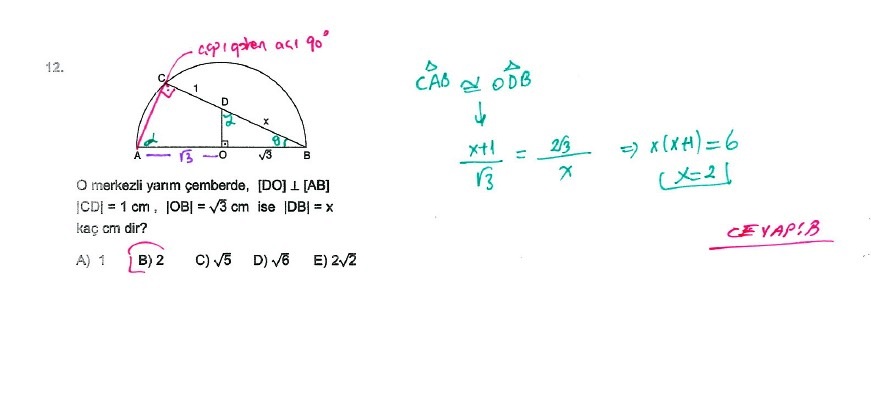 açıyı gören açı 90°
12.
C
1
D
α
x
α
θ
A
√3
O
√3
B
O merkezli yarım çemberde, [DO] ⊥ [AB]
|CD| = 1 cm , |OB| = √3 cm ise |DB| = x
kaç cm dir?
A) 1 B) 2 C) √5 D) √6 E) 2√2
CAB ≅ ODB
x+1/√3 = 2√3/x ⇒ x(x+1) = 6
x=2
CEVAP:B